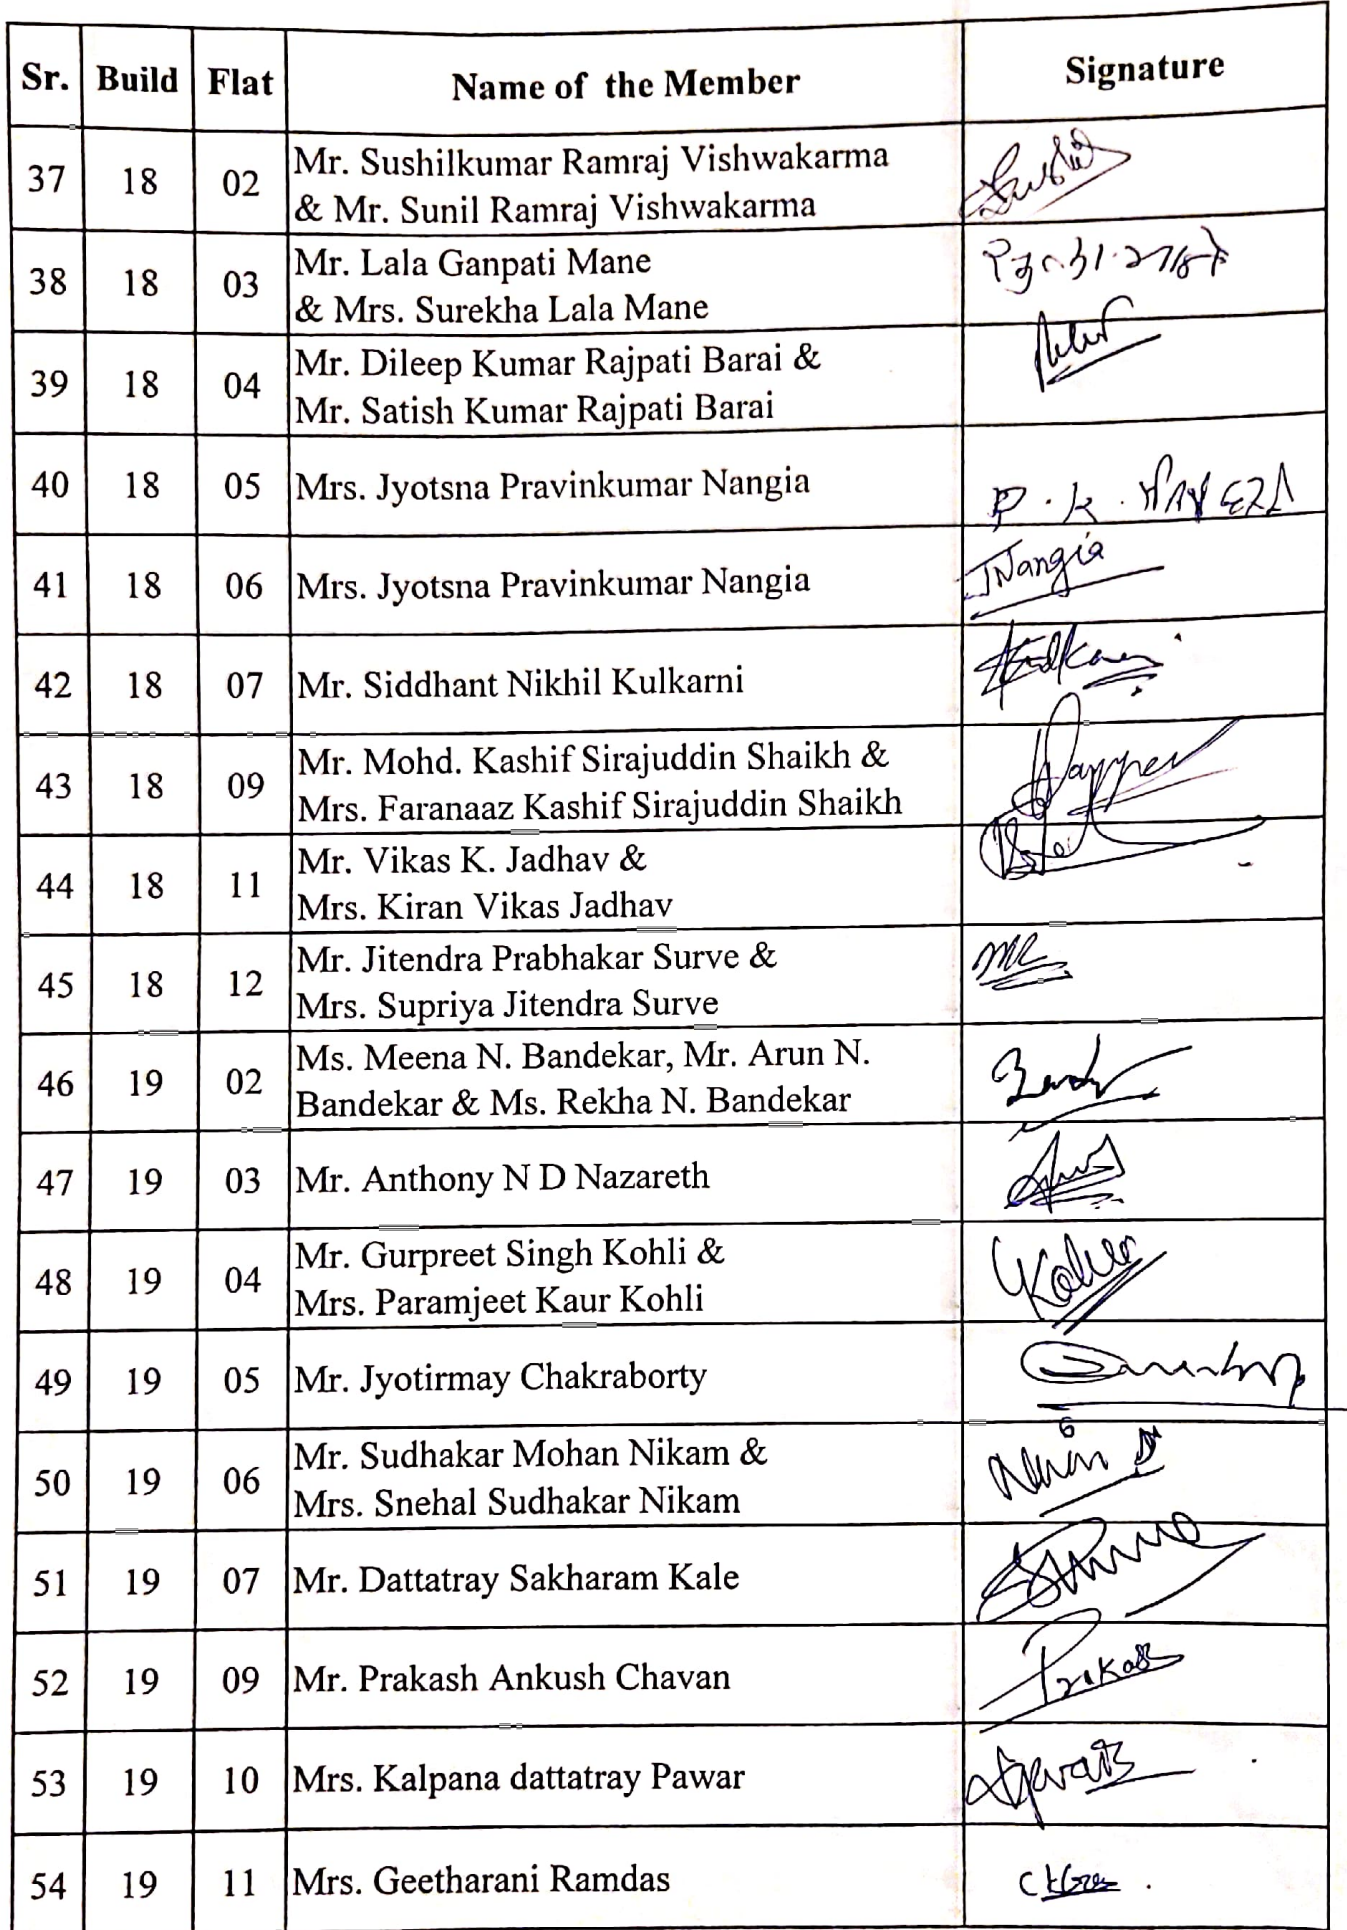 Sr. Build Flat Name of the Member Signature
37 18 02 Mr. Sushilkumar Ramraj Vishwakarma
& Mr. Sunil Ramraj Vishwakarma
38 18 03 Mr. Lala Ganpati Mane
& Mrs. Surekha Lala Mane
39 18 04 Mr. Dileep Kumar Rajpati Barai &
Mr. Satish Kumar Rajpati Barai
40 18 05 Mrs. Jyotsna Pravinkumar Nangia P. K.
41 18 06 Mrs. Jyotsna Pravinkumar Nangia JNangia
42 18 07 Mr. Siddhant Nikhil Kulkarni
43 18 09 Mr. Mohd. Kashif Sirajuddin Shaikh &
Mrs. Faranaaz Kashif Sirajuddin Shaikh
44 18 11 Mr. Vikas K. Jadhav &
Mrs. Kiran Vikas Jadhav
45 18 12 Mr. Jitendra Prabhakar Surve &
Mrs. Supriya Jitendra Surve
46 19 02 Ms. Meena N. Bandekar, Mr. Arun N.
Bandekar & Ms. Rekha N. Bandekar
47 19 03 Mr. Anthony N D Nazareth
48 19 04 Mr. Gurpreet Singh Kohli &
Mrs. Paramjeet Kaur Kohli
49 19 05 Mr. Jyotirmay Chakraborty
50 19 06 Mr. Sudhakar Mohan Nikam &
Mrs. Snehal Sudhakar Nikam
51 19 07 Mr. Dattatray Sakharam Kale
52 19 09 Mr. Prakash Ankush Chavan Prakash
53 19 10 Mrs. Kalpana dattatray Pawar
54 19 11 Mrs. Geetharani Ramdas